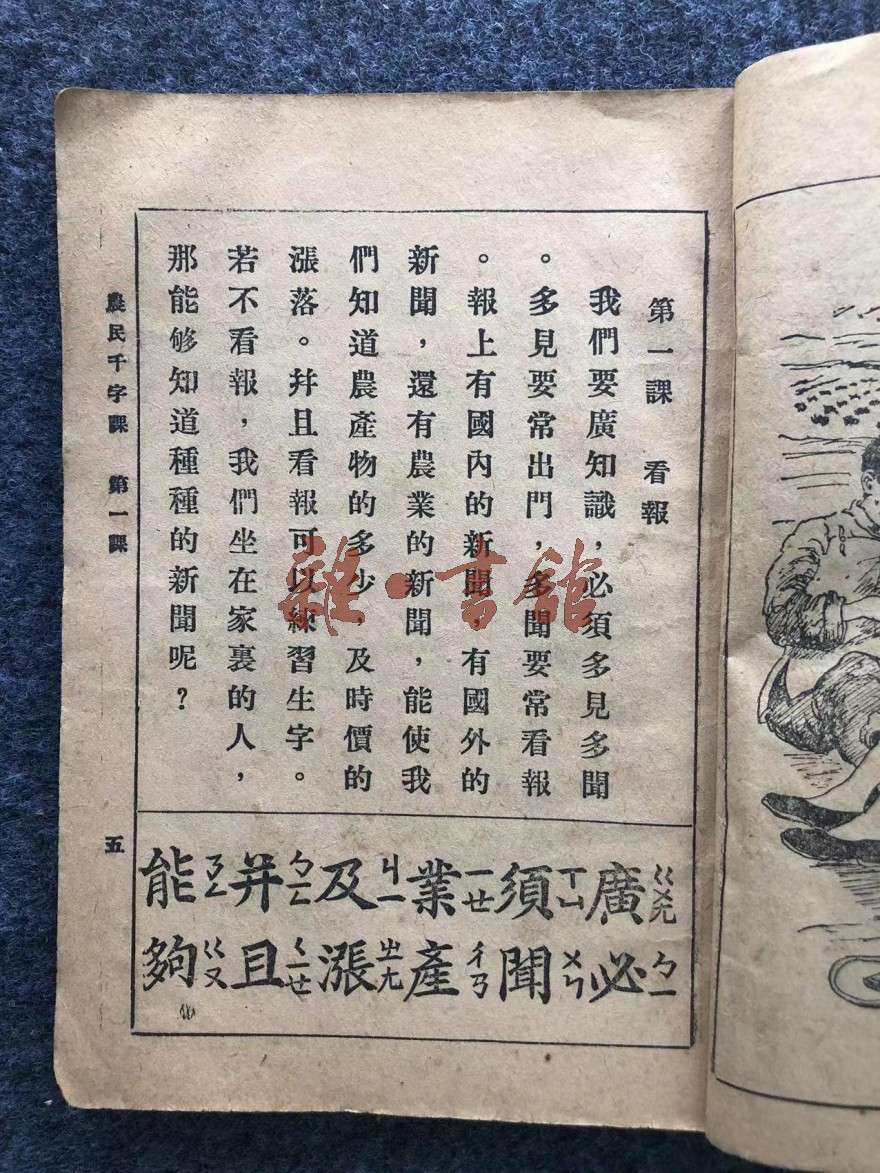 第一課　看報
我們要廣知識，必須多見多聞
。多見要常出門，多聞要常看報
。報上有國內的新聞，有國外的
新聞，還有農業的新聞，能使我
們知道農產物的多少，及時價的
漲落。幷且看報可以練習生字。
若不看報，我們坐在家裏的人，
那能够知道種種的新聞呢？
廣ㄍㄨㄤ　必ㄅㄧ
須ㄒㄩ　聞ㄨㄣ
業ㄧㄝ　產ㄔㄢ
及ㄐㄧ　漲ㄓㄤ
幷ㄅㄧㄥ　且ㄑㄧㄝ
能ㄋㄥ　夠ㄍㄡ
農民千字課　第一課　五
雜·書館